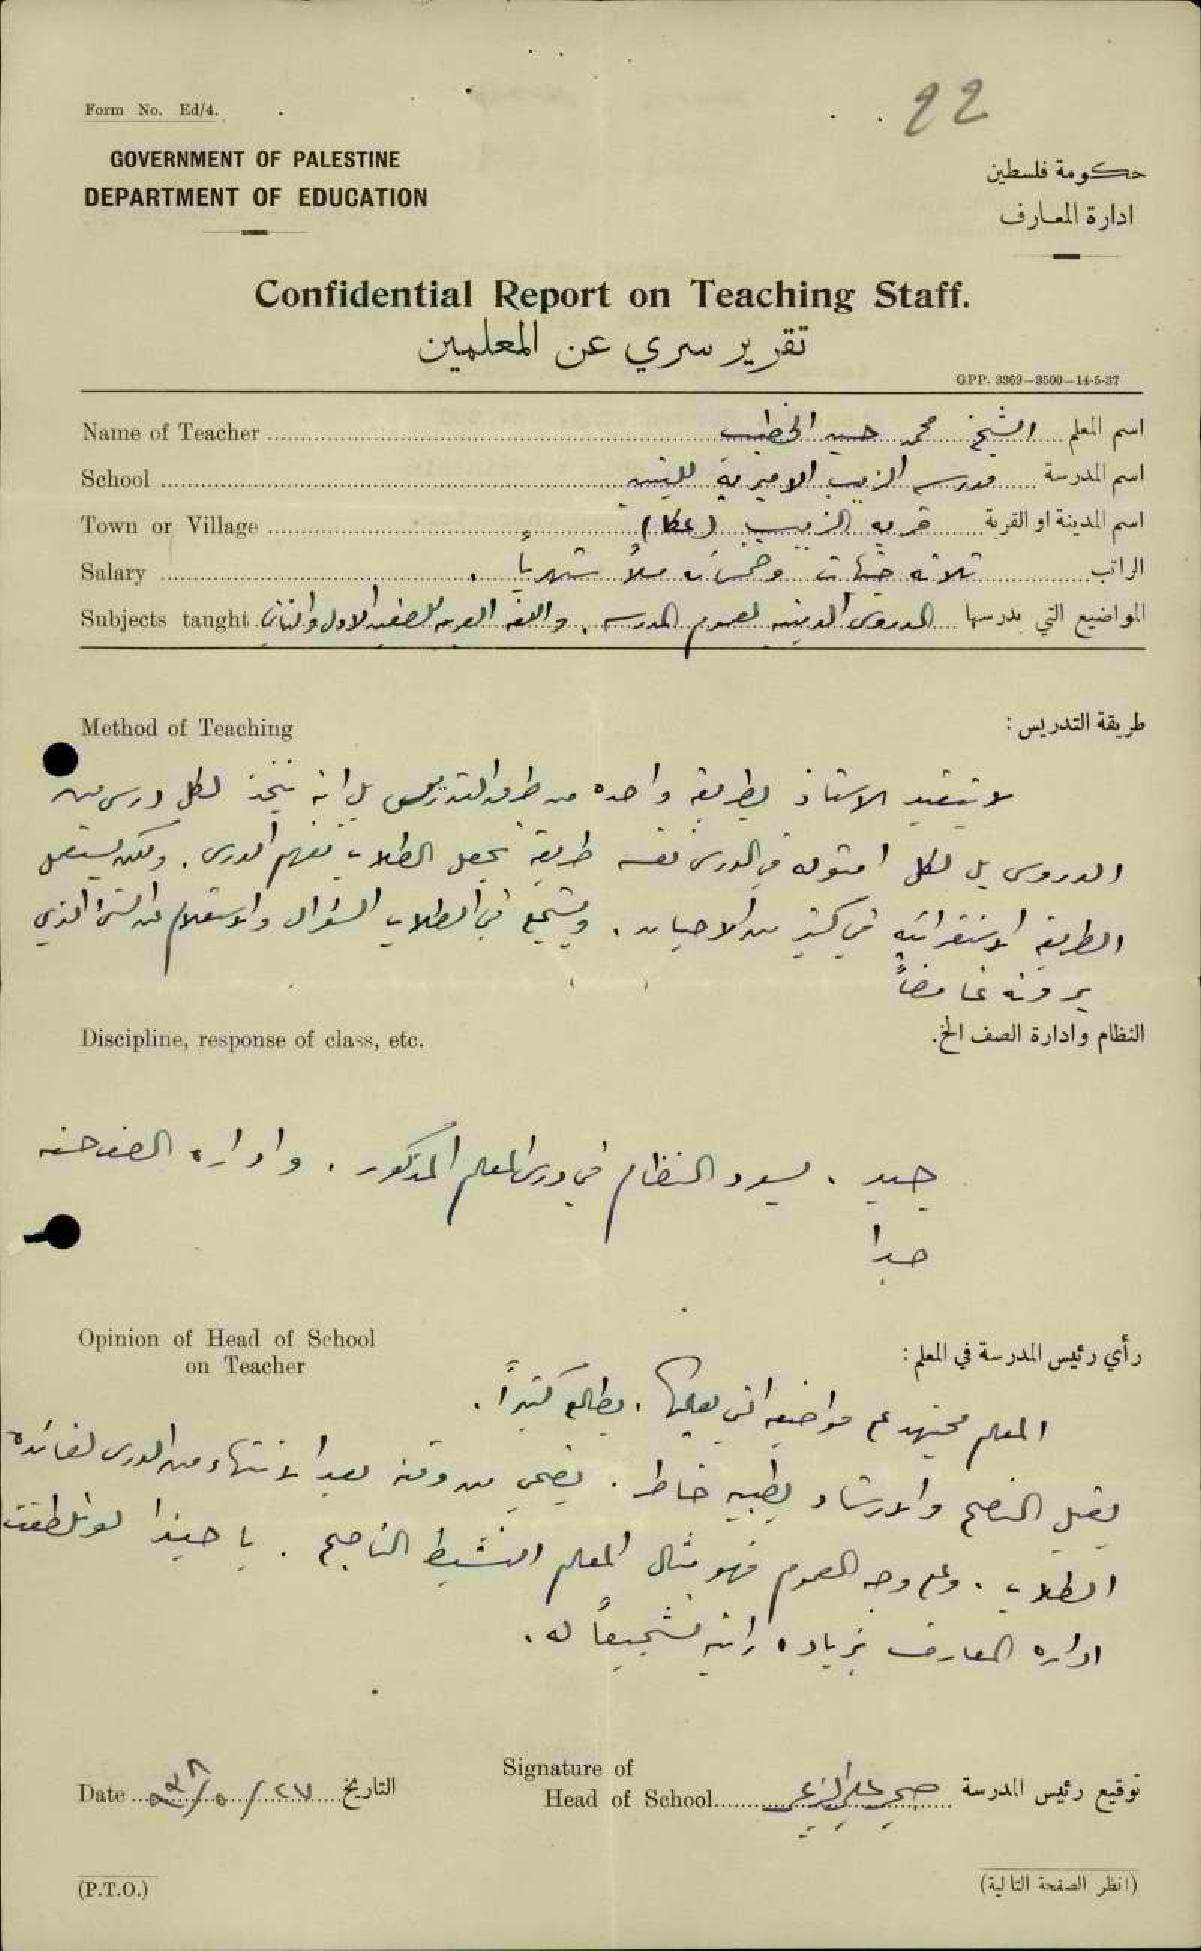 22
Form No. Ed/4.
GOVERNMENT OF PALESTINE
DEPARTMENT OF EDUCATION
حكومة فلسطين
ادارة المعارف
Confidential Report on Teaching Staff.
تقرير سري عن المعلمين
GPP. 3369—3500—14-5-37
Name of Teacher الشيخ محمد الخطيب اسم المعلم
School مدرسة الزيب الاميرية للبنين اسم المدرسة
Town or Village قرية الزيب (عكا) اسم المدينة او القرية
Salary ثلاثة جنيهات وخمسمائة ملاً شهرياً . الراتب
Subjects taught الدروس الدينيه لعموم المدرسه . واللغه العربيه للصفين الاول والثاني المواضيع التي يدرسها
Method of Teaching طريقة التدريس :
لا يتقيد الاستاذ بطريقة واحده من طرق التدريس بل انه يتخذ لكل درس من
الدروس بل لكل امثوله في الدرس نفسه طريقة تجعل الطلاب تفهم الدرس . ولكنه يستعمل
الطريقه الاستقرائيه في كثير من الاحيان . ويشجع في الطلاب السؤال والاستعلام عن الشئ الذي
يرونه غامضاً
Discipline, response of class, etc. النظام وادارة الصف الخ.
جيد . يسود النظام في درس المعلم المذكور . واداره الصف حسنه
جدا
Opinion of Head of School
on Teacher
رأي رئيس المدرسة في المعلم :
المعلم مجتهد مواضيعه التي يعلمها . يطالع كثيراً .
يقبل النصح والارشاد بطيبه خاطر . يضحي من وقته بعد الانتهاء من الدرس لفائدة
الطلاب . وعلى وجه العموم فهو مثال المعلم النشيط الناجح . يا حبذا لو تلطفت
اداره المعارف بزياده راتبه تشجيعاً له .
Date ٢٧ / ٥ / ٩٣٨ التاريخ
Signature of
Head of School توقيع رئيس المدرسة
(P.T.O.)
(انظر الصفحة التالية)